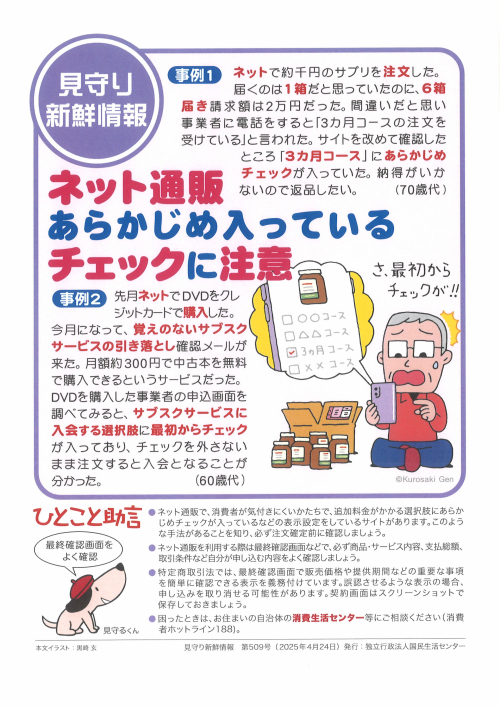 見守り
新鮮情報
事例1
ネットで約千円のサプリを注文した。
届くのは1箱だと思っていたのに、6箱
届き請求額は2万円だった。間違いだと思い
事業者に電話をすると「3カ月コースの注文を
受けている」と言われた。サイトを改めて確認した
ところ「3カ月コース」にあらかじめ
チェックが入っていた。納得がいか
ないので返品したい。（70歳代）
ネット通販
あらかじめ入っている
チェックに注意
事例2
先月ネットでDVDをクレ
ジットカードで購入した。
今月になって、覚えのないサブスク
サービスの引き落とし確認メールが
来た。月額約300円で中古本を無料
で購入できるというサービスだった。
DVDを購入した事業者の申込画面を
調べてみると、サブスクサービスに
入会する選択肢に最初からチェック
が入っており、チェックを外さない
まま注文すると入会となることが
分かった。（60歳代）
さ、最初から
チェックが!!
○○コース
△△コース
3ヵ月コース
××コース
©Kurosaki Gen
ひとこと助言
最終確認画面を
よく確認
見守るくん
●ネット通販で、消費者が気付きにくいかたちで、追加料金がかかる選択肢にあらか
じめチェックが入っているなどの表示設定をしているサイトがあります。このよう
な手法があることを知り、必ず注文確定前に確認しましょう。
●ネット通販を利用する際は最終確認画面などで、必ず商品・サービス内容、支払総額、
取引条件など自分が申し込む内容をよく確認しましょう。
●特定商取引法では、最終確認画面で販売価格や提供期間などの重要な事項
を簡単に確認できる表示を義務付けています。誤認させるような表示の場合、
申し込みを取り消せる可能性があります。契約画面はスクリーンショットで
保存しておきましょう。
●困ったときは、お住まいの自治体の消費生活センター等にご相談ください（消費
者ホットライン188）。
本文イラスト：黒崎 玄
見守り新鮮情報　第509号（2025年4月24日）発行：独立行政法人国民生活センター